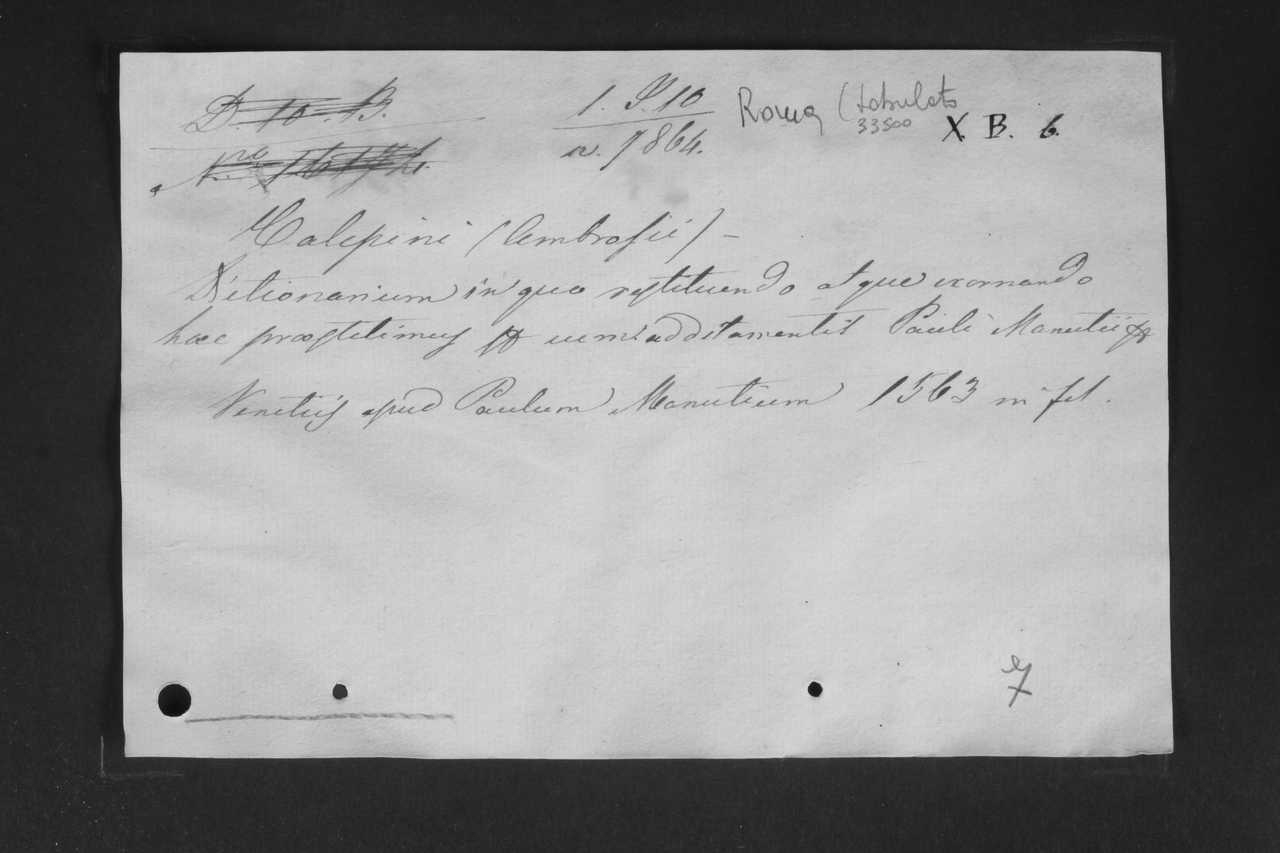 D. 10. B.
1. J. 10
Roma (tabulato
33500
X. B. 6.
N.ro
n. 7864.
Calepini (Ambrosii) –
Ditionarium in quo restituendo atque exornando
haec praestitimus &c cum additamentis Pauli Manutii &c
Venetiis apud Paulum Manutium 1563 in fol.